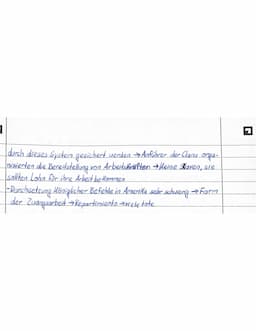 durch dieses System gesichert werden → Anführer der Clans orga-
nisierten die Bereitstellung von Arbeitskräften → keine Sklaven, sie
sollten Lohn für ihre Arbeit bekommen
-Durchsetzung königlicher Befehle in Amerika sehr schwierig → Form
der Zwangsarbeit → Repartimiento → viele tote